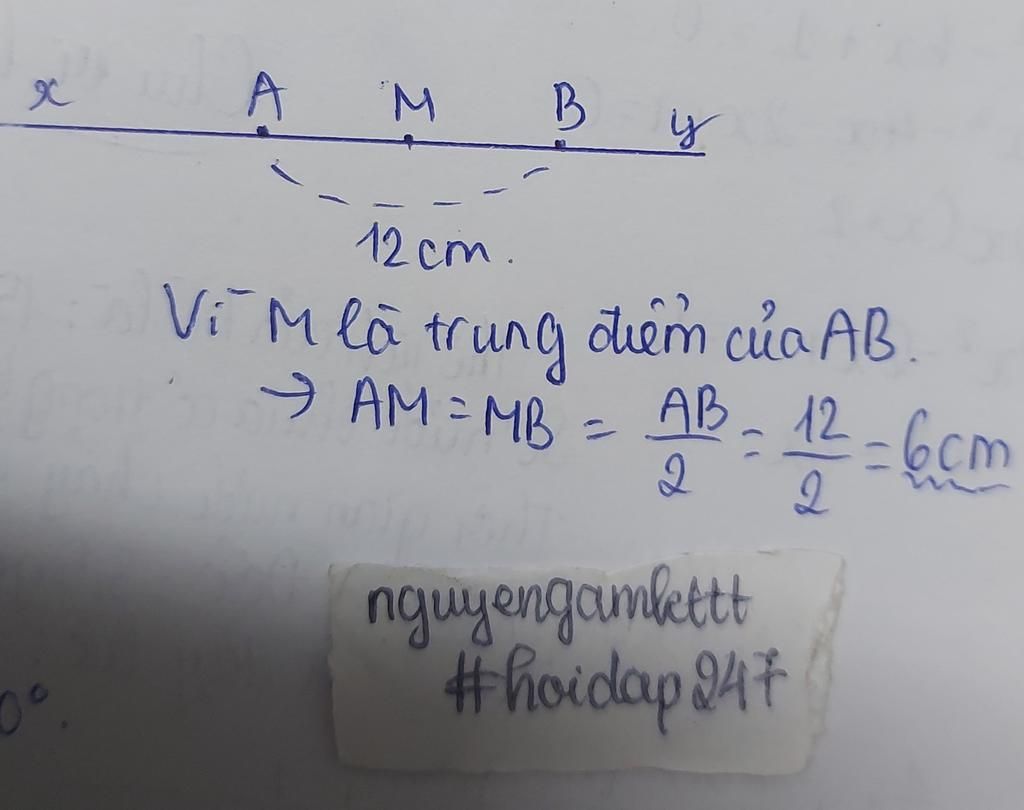 x A M B y
12 cm.
Vì M là trung điểm của AB.
→ AM = MB = AB/2 = 12/2 = 6cm
nguyengamkttt
#hoidap247
0°.